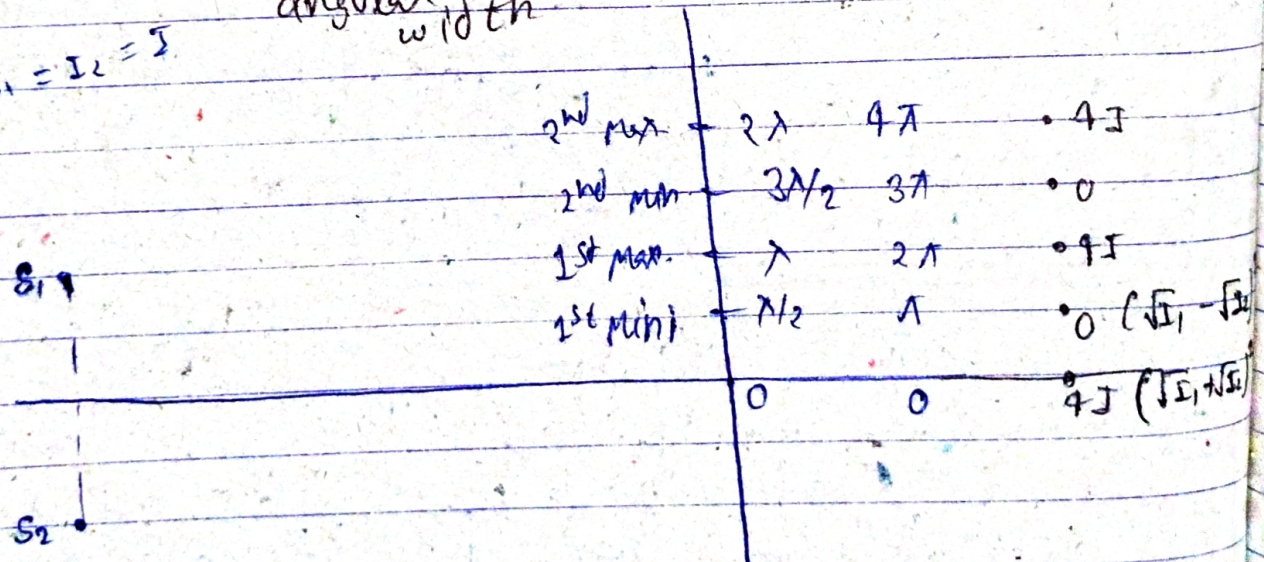 angular
width
= I₂ = I
2nd Max 2λ 4π • 4I
2nd Min 3λ/2 3π • 0
S₁ 1st Max. λ 2π • 4I
1st Mini. λ/2 π • 0 (√I₁ - √I₂)
0 0 4I (√I₁ + √I₂)
S₂